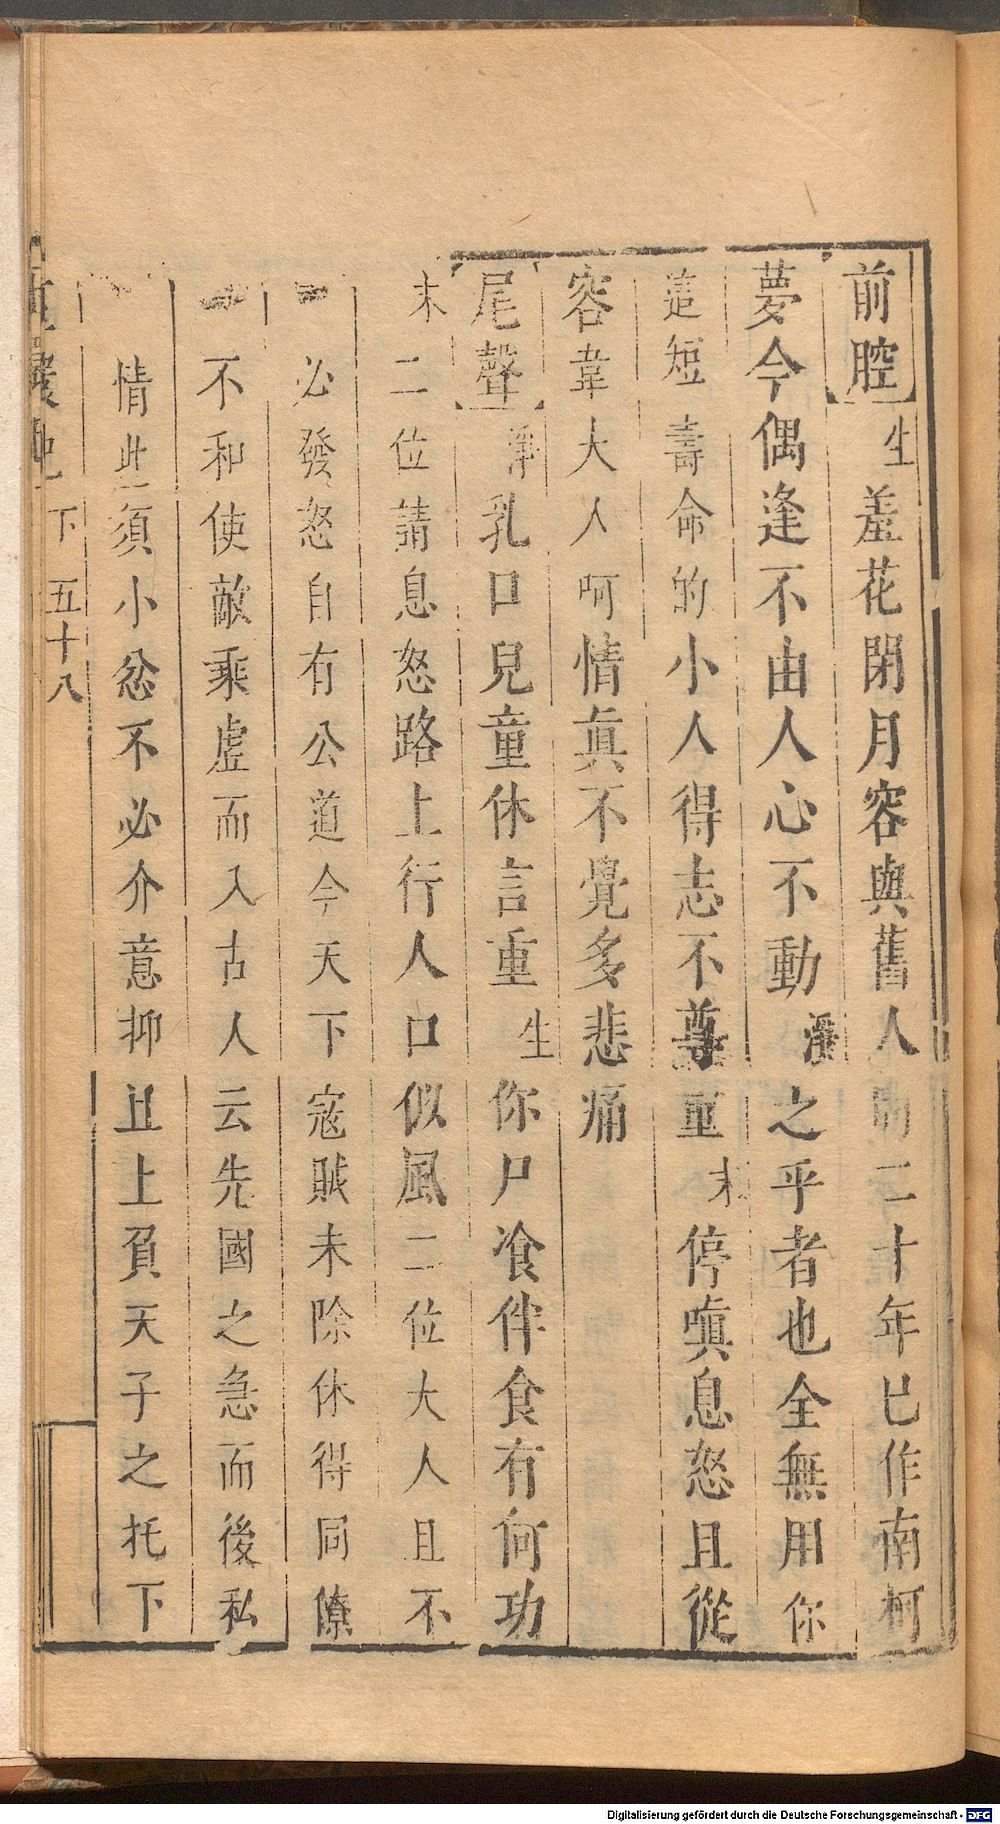 前腔生羞花閉月容與舊人二十年已作南柯
夢今偶逢不由人心不動淨之乎者也全無用你
這短壽命的小人得志不尊重末停嗔息怒且從
容韋大人人呵情眞不覺多悲痛
尾聲淨乳口兒童休言重生你尸飡伴食有何功
末二位請息怒路上行人口似風二位大人且不
必發怒自有公道今天下寇賊未除休得同僚
不和使敵乘虛而入古人云先國之急而後私
情此須小忿不必介意抑且上負天子之托下
下 五十八
Digitalisierung gefördert durch die Deutsche Forschungsgemeinschaft - DFG